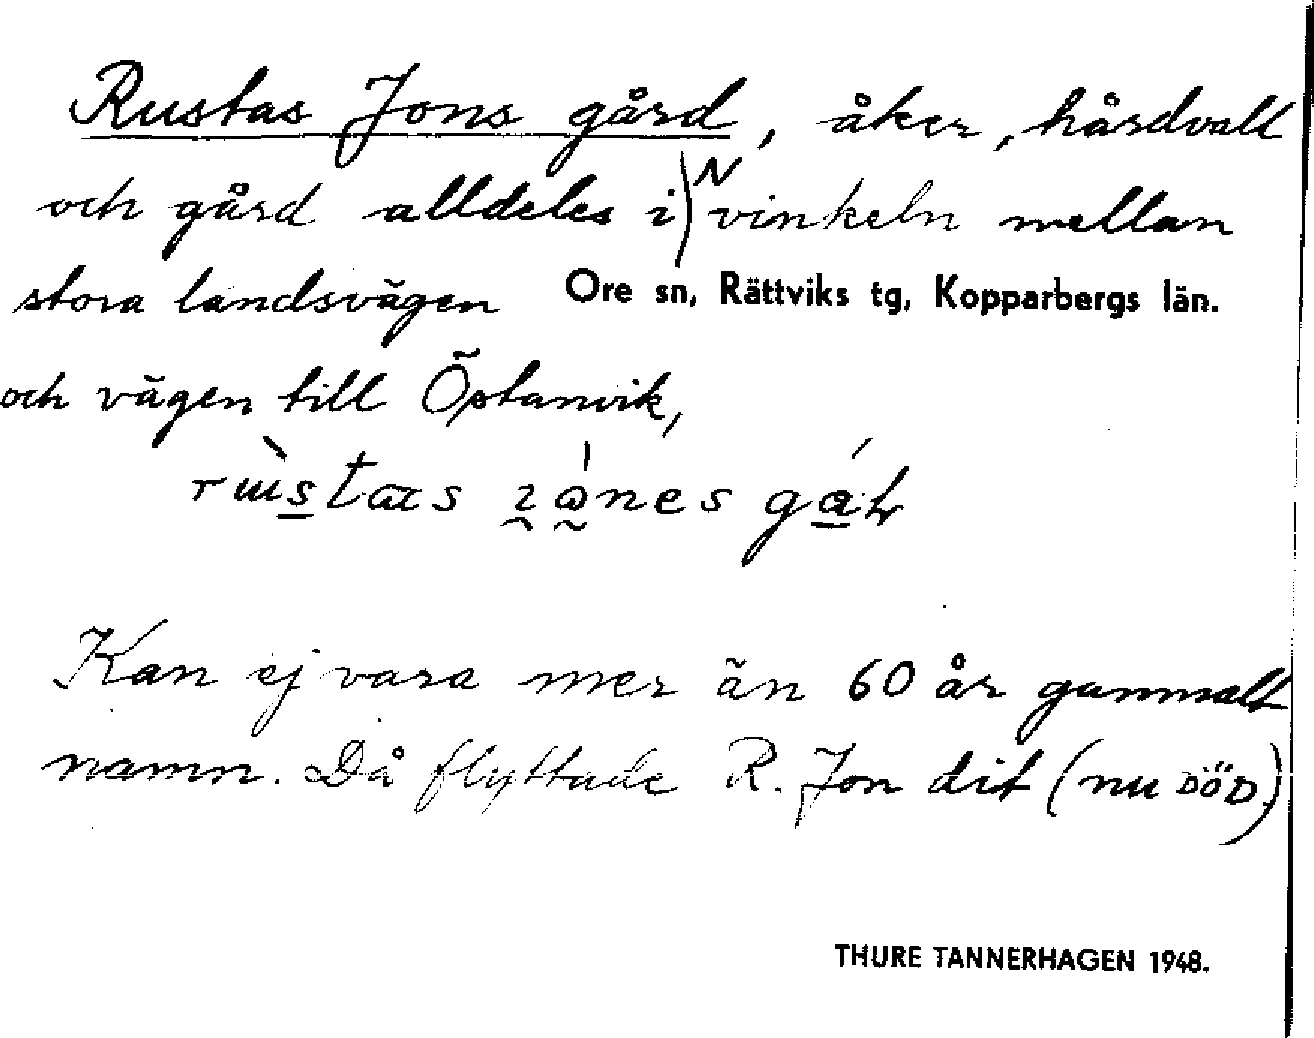 Rustas Jons gård, åker, hårdvall
och gård alldeles i N vinkeln mellan
stora landsvägen Ore sn, Rättviks tg, Kopparbergs län.
och vägen till Östanvik,
Kan ej vara mer än 60 år gammalt
namn. Då flyttade R. Jon dit (nu DÖD)
THURE TANNERHAGEN 1948.